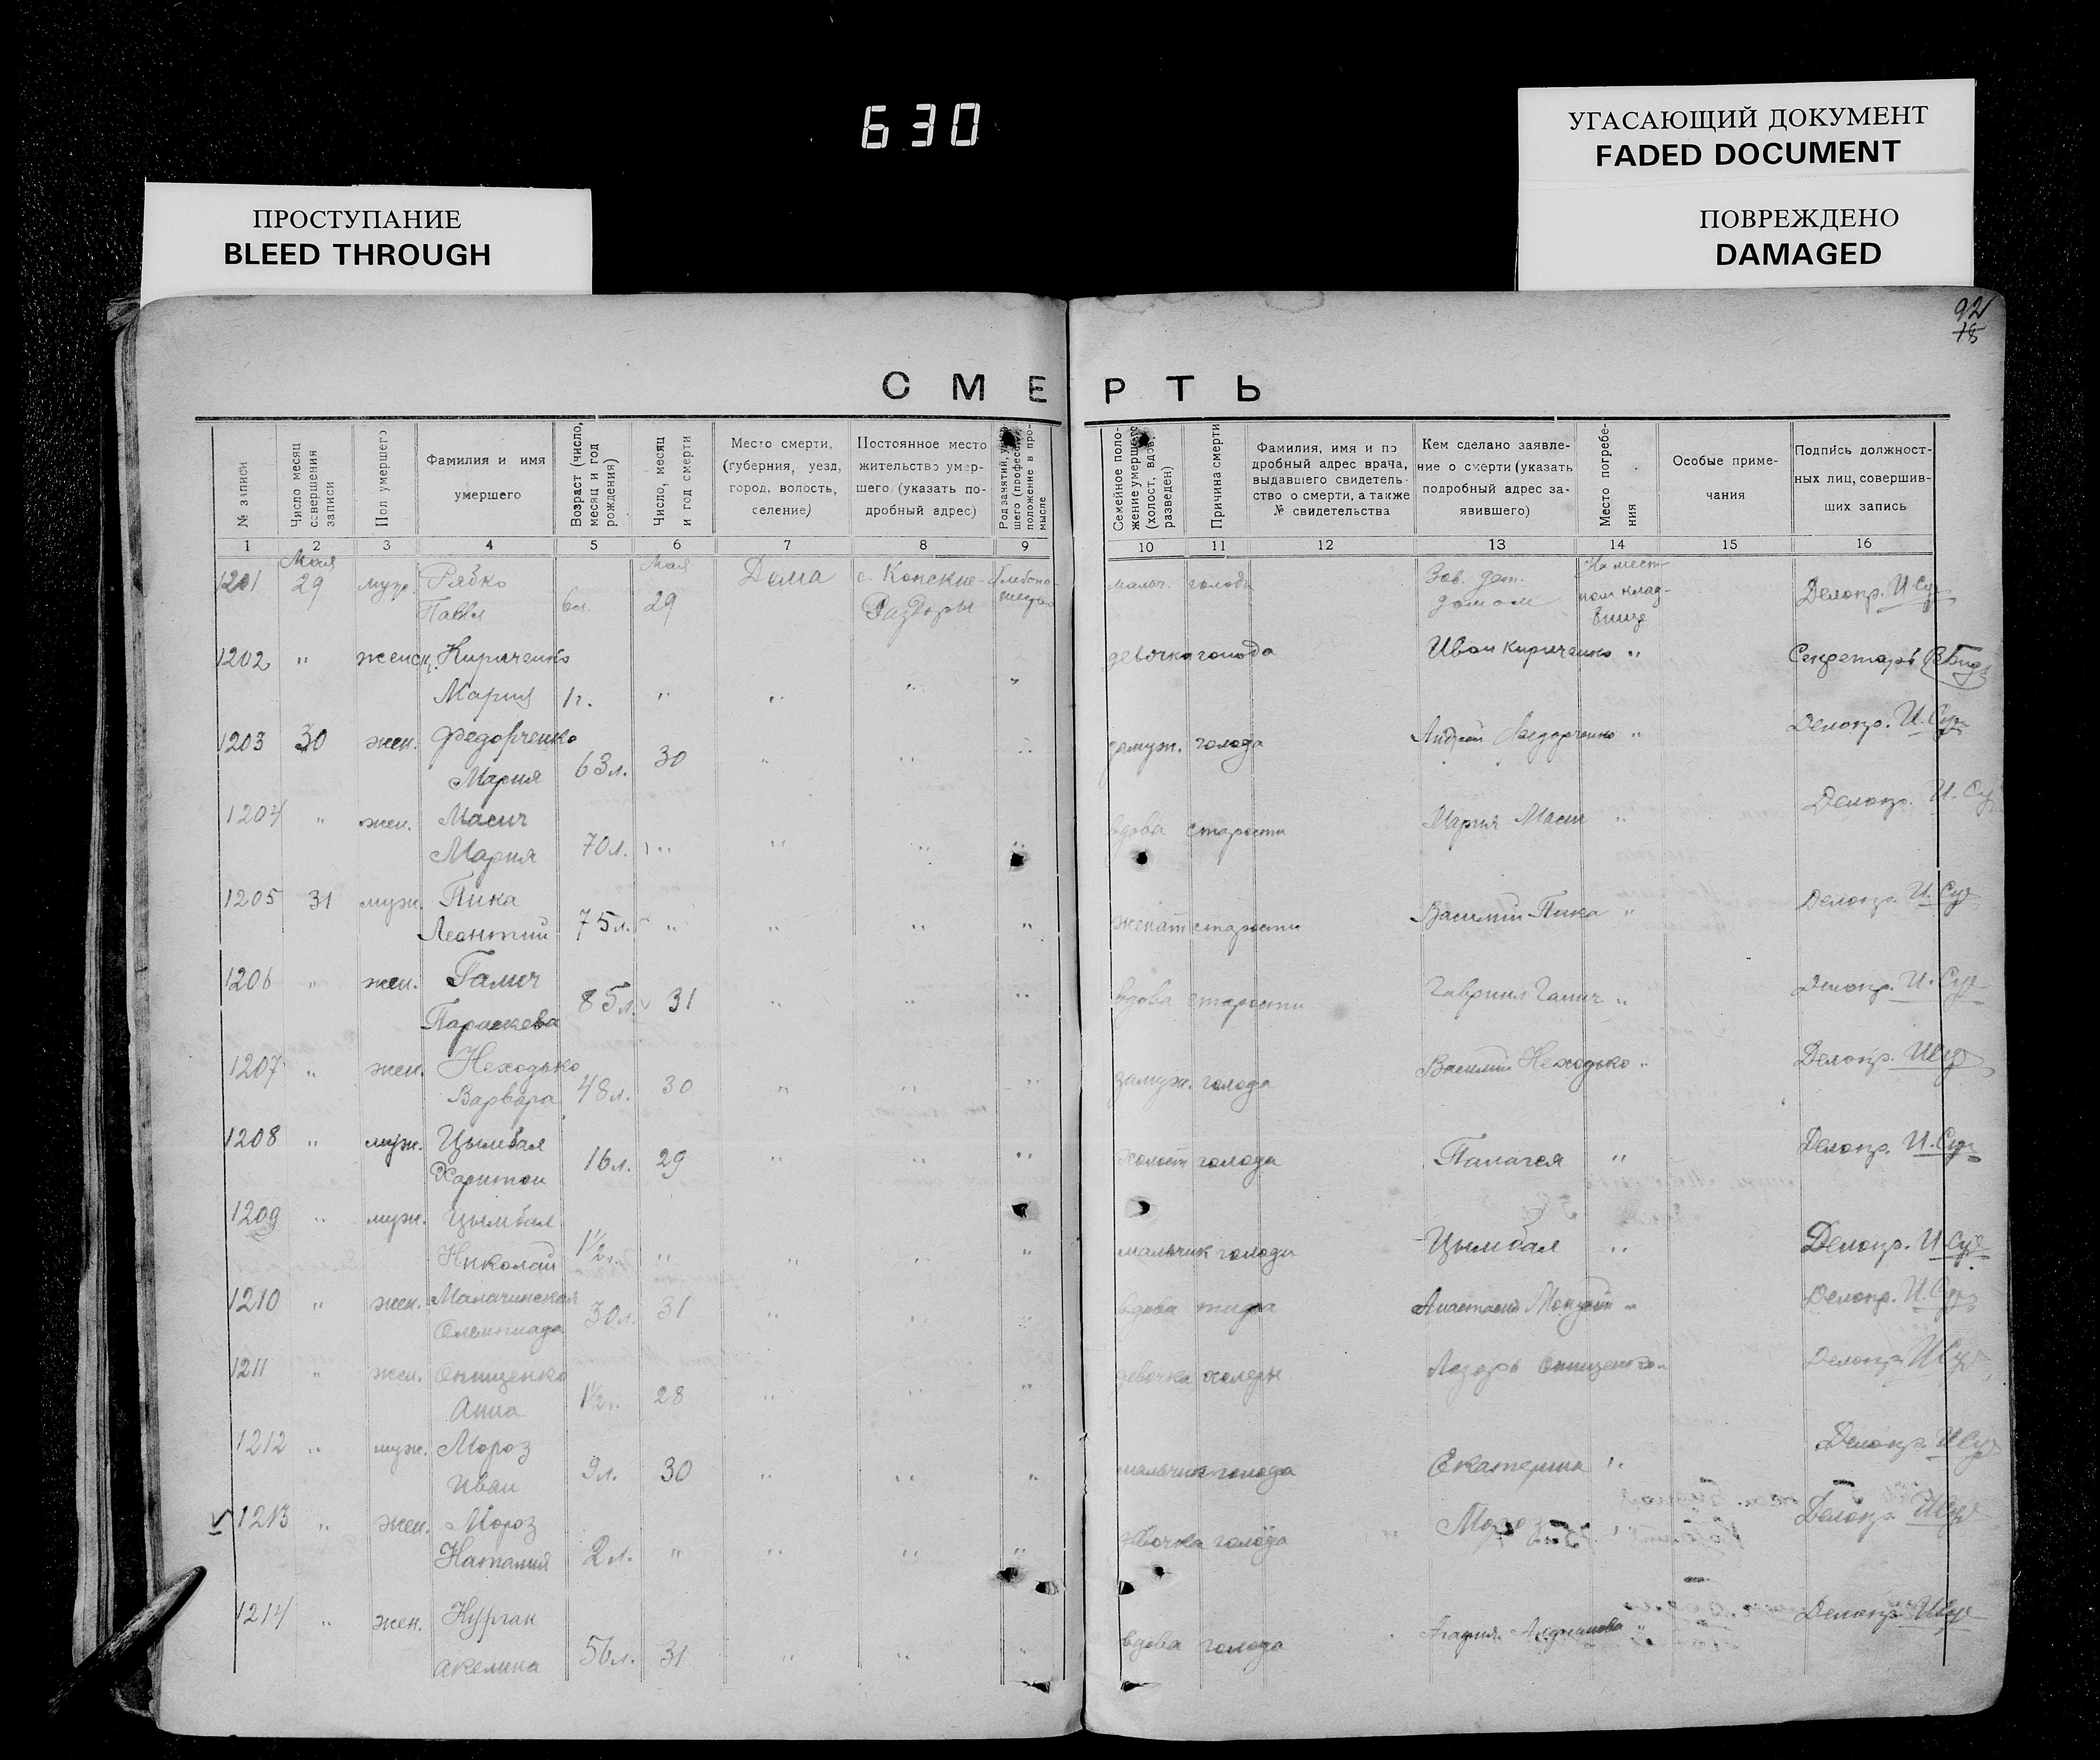 630
УГАСАЮЩИЙ ДОКУМЕНТ
FADED DOCUMENT
ПОВРЕЖДЕНО
DAMAGED
ПРОСТУПАНИЕ
BLEED THROUGH
92
18
СМЕРТЬ
№ записи
Число месяц совершения записи
Пол умершего
Фамилия и имя умершего
Возраст (число, месяц и год рождения)
Число, месяц и год смерти
Место смерти, (губерния, уезд, город, волость, селение)
Постоянное место жительство умершего (указать подробный адрес)
Семейное положение умершего (холост, вдов, разведен)
Причина смерти
Фамилия, имя и подробный адрес врача, выдавшего свидетельство о смерти, а также № свидетельства
Кем сделано заявление о смерти (указать подробный адрес заявившего)
Место погребения
Особые примечания
Подпись должностных лиц, совершивших запись
1 2 3 4 5 6 7 8 9 10 11 12 13 14 15 16
Мая Мая На мест-
1201 29 муж. Рябко Дома с. Конские- мальч. голода Зав. дет. ном клад- Делопр.
Павел 6л. 29 Раздоры домом бище
1202 " женск. Кириченко девочка голода Иван Кириченко " Секретарь
Мария 1г. " " " "
1203 30 жен. Федорченко замуж. голода Андрей Федорченко " Делопр.
Мария 63л. 30 " " "
1204 " жен. Масич вдова старости Мария Масич " Делопр.
Мария 70л. " " " "
1205 31 муж. Пика женат старости Василий Пика " Делопр.
Леонтий 75л. " " " "
1206 " жен. Галич вдова старости Гавриил Галич " Делопр.
Параскева 85л. 31 " " "
1207 " жен. Неходько замуж. голода Василий Неходько " Делопр.
Варвара 48л. 30 " " "
1208 " муж. Цымбал холост голода Палагея " Делопр.
Харитон 16л. 29 " " "
1209 " муж. Цымбал мальчик голода Цымбал " Делопр.
Николай 1½г. " " " "
1210 " жен. вдова тифа Анастасия " Делопр.
Олемпиада 30л. 31 " " "
1211 " жен. Онищенко девочка холеры Лазарь Онищенко " Делопр.
Анна 1½г. 28 " " "
1212 " муж. Мороз мальчик голода Екатерина " Делопр.
Иван 9л. 30 " " "
1213 " жен. Мороз девочка голода Мороз " Делопр.
Наталия 2л. " " " "
1214 " жен. Курган вдова голода Агафия " Делопр.
Акелина 56л. 31 " " "